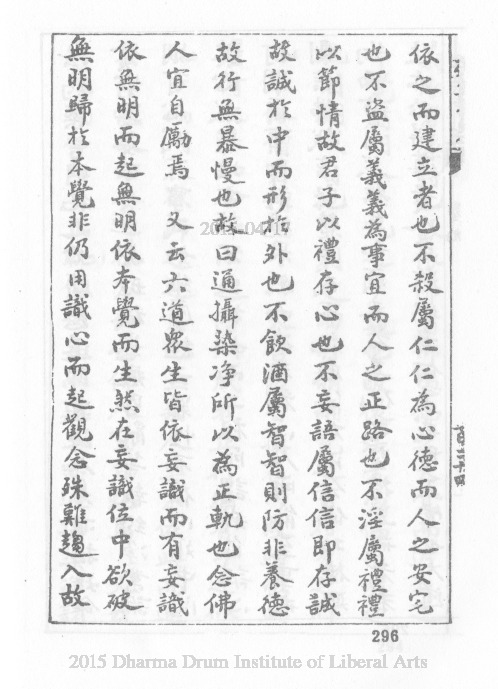 依之而建立者也不殺屬仁仁為心德而人之安宅
也不盜屬義義為事宜而人之正路也不淫屬禮禮
以節情故君子以禮存心也不妄語屬信信即存誠
故誠於中而形於外也不飲酒屬智智則防非養德
故行無暴慢也故曰通攝染淨所以為正軌也念佛
人宜自勵焉 又云六道眾生皆依妄識而有妄識
依無明而起無明依本覺而生然在妄識位中欲破
無明歸於本覺非仍用識心而起觀念殊難趨入故
296
2015 Dharma Drum Institute of Liberal Arts